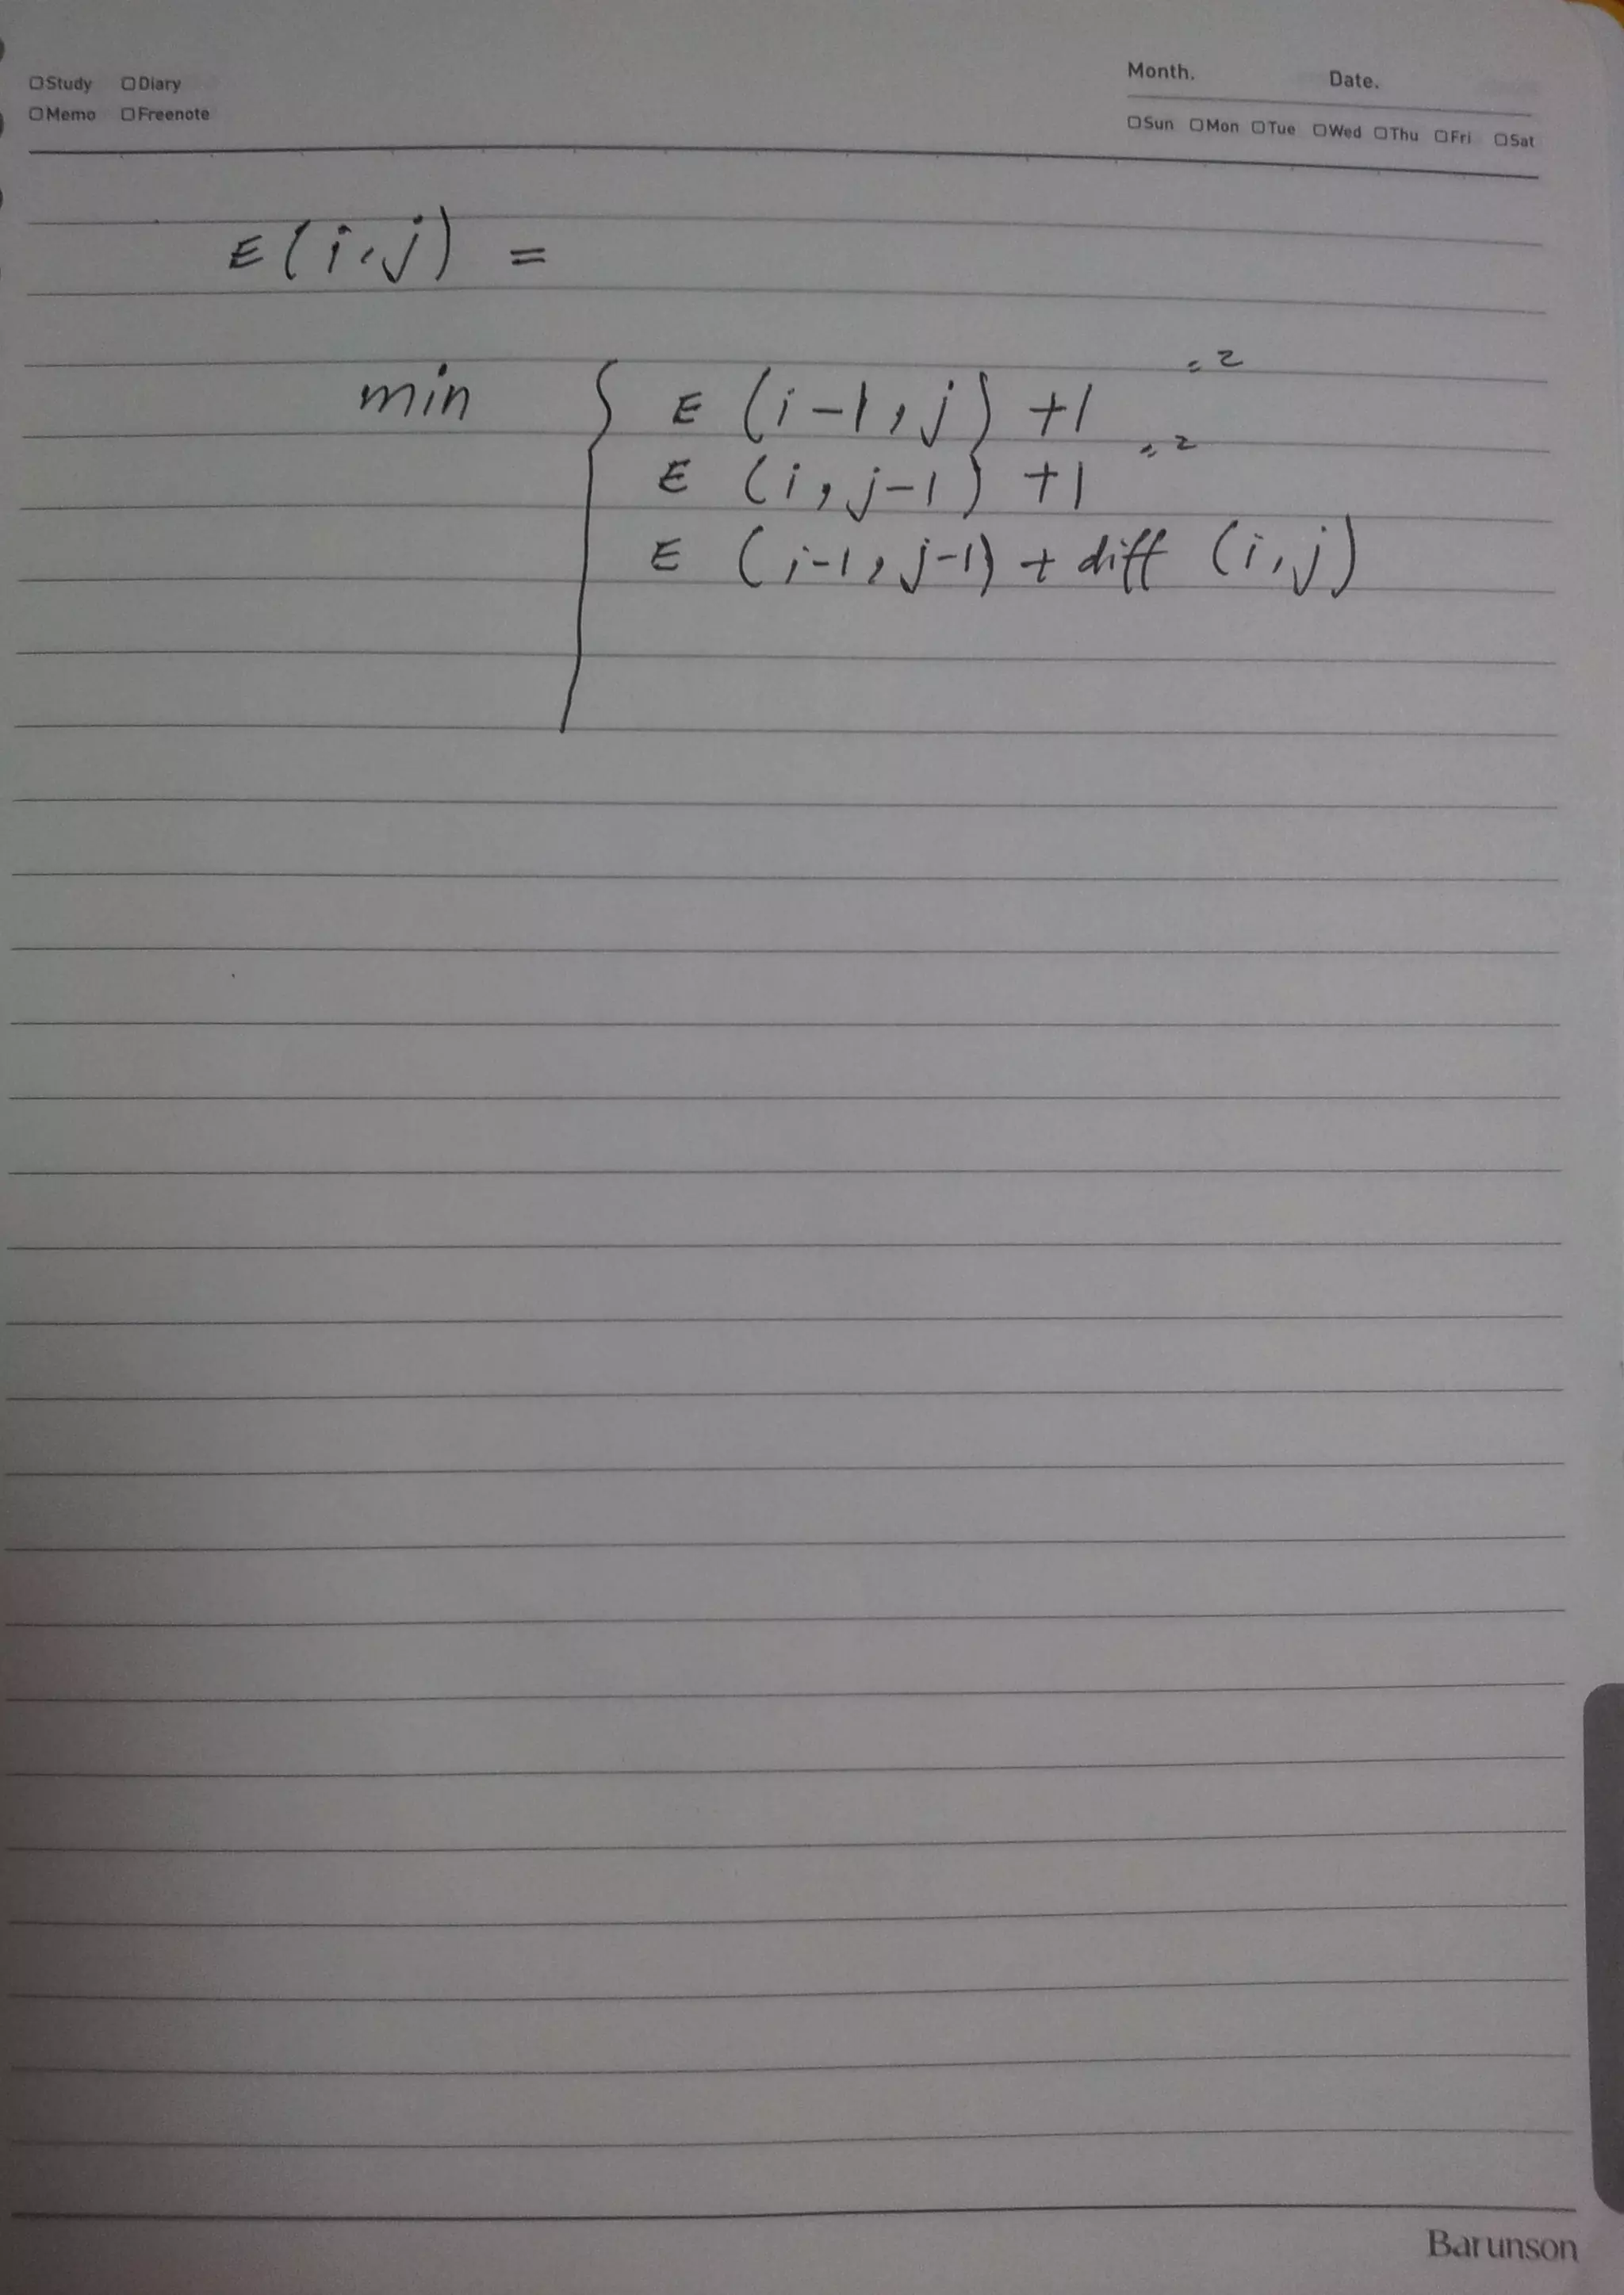 ☐Study ☐Diary
☐Memo ☐Freenote
Month. Date.
☐Sun ☐Mon ☐Tue ☐Wed ☐Thu ☐Fri ☐Sat
E(i,j) =
min { E (i-1, j) +1 = 2
E (i, j-1) +1 = 2
E (i-1, j-1) + diff (i,j)
Barunson